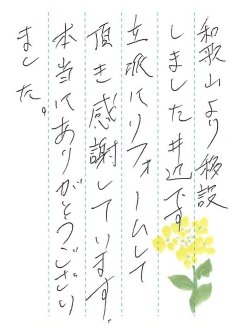 和歌山より移設
しました井辺です
立派にリフォームして
頂き感謝しています。
本当にありがとうござい
ました。